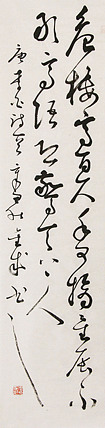 危樓高百尺手可摘星辰不
敢高語恐驚天上人
唐李白詩